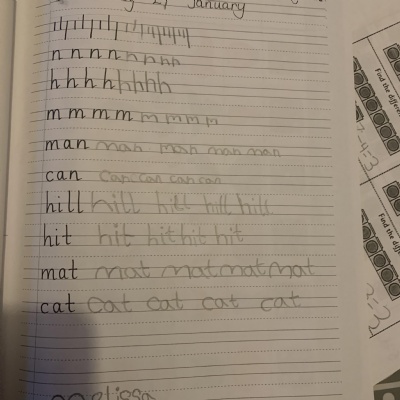 January
n n n n n n n n
h h h h h h h h
m m m m m m m m
man man man man man
can can can can can
hill hill hill hill hill
hit hit hit hit hit
mat mat mat mat mat
cat cat cat cat cat
Find the differ
Find the differ